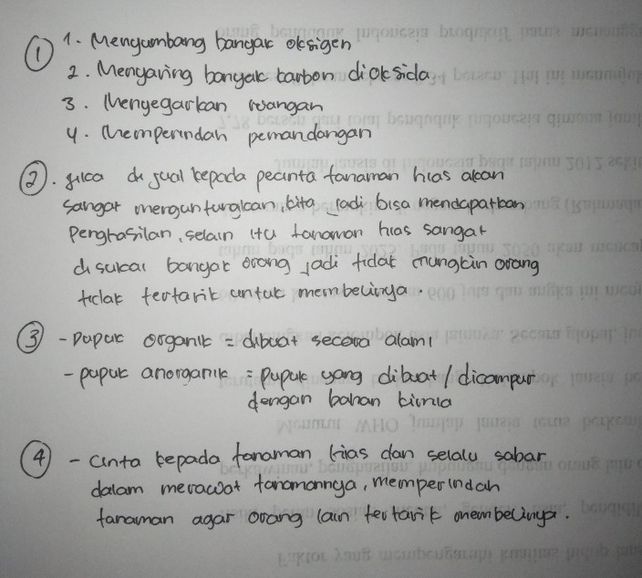 ① 1. Menyumbang banyak oksigen
2. Menyaring banyak karbon dioksida
3. Menyegarkan ruangan
4. Memperindah pemandangan
②. Jika di jual kepada pecinta tanaman hias akan
sangat menguntungkan, kita jadi bisa mendapatkan
Penghasilan, selain itu tanaman hias sangat
disukai banyak orang jadi tidak mungkin orang
tidak tertarik untuk membelinya.
③ - Pupuk organik = dibuat secara alami
- pupuk anorganik = pupuk yang dibuat / dicampur
dengan bahan kimia
④ - Cinta kepada tanaman hias dan selalu sabar
dalam merawat tanamannya, memperindah
tanaman agar orang lain tertarik membelinya.